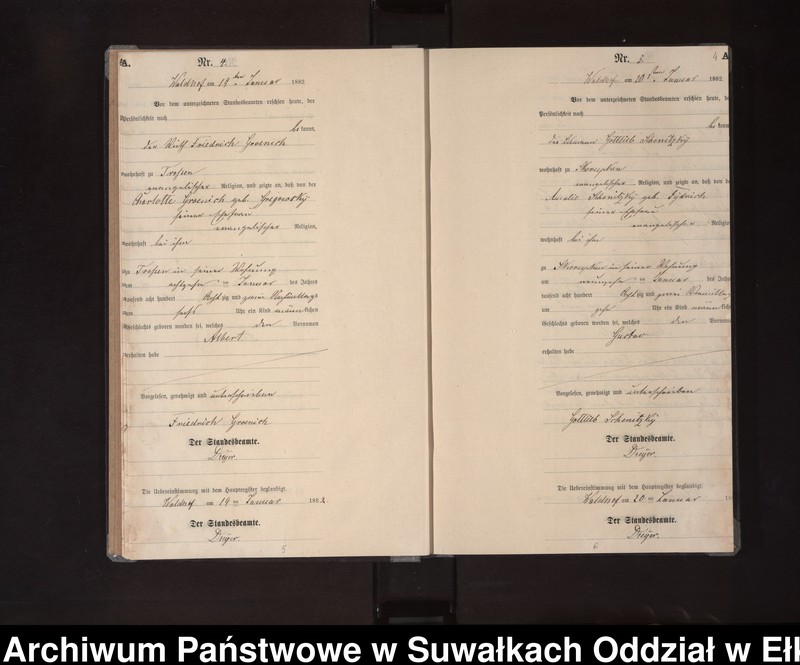 A.
Nr. 4.
Waldhof am 19ten Januar 1882
Vor dem unterzeichneten Standesbeamten erschien heute, der
Persönlichkeit nach
bekannt,
der Friedrich Groenich
wohnhaft zu
evangelischer Religion, und zeigte an, daß von der
Charlotte Groenich geb.
seiner Ehefrau
evangelischer Religion,
wohnhaft bei ihm
zu in seiner Wohnung
am achtzehn ten Januar des Jahres
tausend acht hundert Achtzig und zwei Nachmittags
um sechs Uhr ein Kind männlichen
Geschlechts geboren worden sei, welches den Vornamen
Albert
erhalten habe
Vorgelesen, genehmigt und unterschrieben
Friedrich Groenich
Der Standesbeamte.
Dreyer.
Die Uebereinstimmung mit dem Hauptregister beglaubigt.
Waldhof am 19ten Januar 1882.
Der Standesbeamte.
Dreyer.
5
4
A
Nr. 5
Waldhof am 20ten Januar 1882
Vor dem unterzeichneten Standesbeamten erschien heute, de
Persönlichkeit nach
bekann
der Gottlieb Schenitzky
wohnhaft zu Skorupken
evangelischer Religion, und zeigte an, daß von d
Amalie Schenitzky geb.
seiner Ehefrau
evangelischer Religio
wohnhaft bei ihm
zu Skorupken in seiner Wohnung
am neunzehn ten Januar des Jahr
tausend acht hundert Achtzig und zwei Vormittag
um zehn Uhr ein Kind männlich
Geschlechts geboren worden sei, welches den Vorname
Gustav
erhalten habe
Vorgelesen, genehmigt und unterschrieben
Gottlieb Schenitzky
Der Standesbeamte.
Dreyer.
Die Uebereinstimmung mit dem Hauptregister beglaubigt.
Waldhof am 20ten Januar 18
Der Standesbeamte.
Dreyer.
6
Archiwum Państwowe w Suwałkach Oddział w Ełk